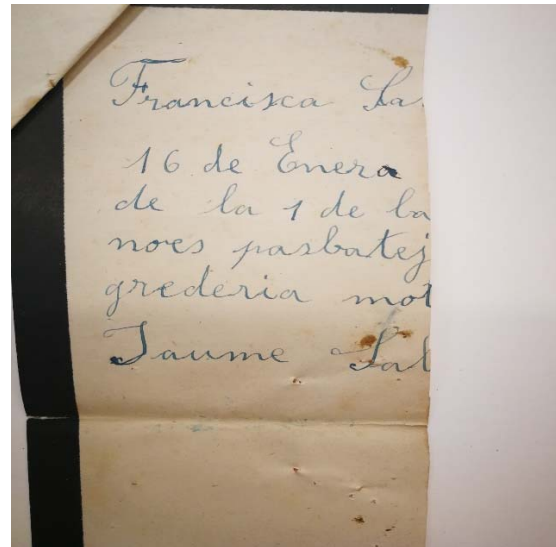 Francisca Sa
16 de Enera
de la 1 de la
noes pasbatej
grederia mot
Jaume Sal